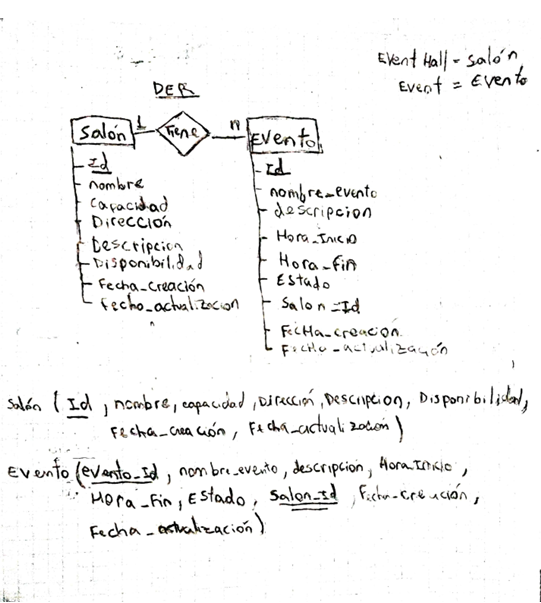 Event Hall = Salón
Event = Evento
DER
Salón 1 Tiene n Evento
Id
nombre
Capacidad
Dirección
Descripcion
Disponibilidad
Fecha_creación
Fecha_actualizacion
Id
nombre_evento
descripcion
Hora_Inicio
Hora_Fin
Estado
Salon_Id
Fecha_creacion
Fecha_actualización
Salón (Id, nombre, capacidad, Dirección, Descripcion, Disponibilidad,
Fecha_creación, Fecha_actualizacion)
Evento (evento_Id, nombre_evento, descripcion, Hora Inicio,
Hora_Fin, Estado, Salon_Id, Fecha_creación,
Fecha_actualización)